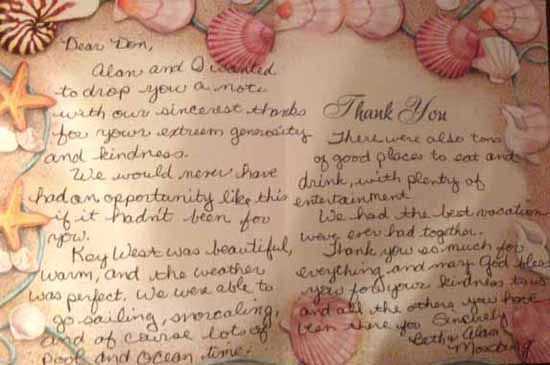 Dear Don,
Alan and I wanted
to drop you a note
with our sincerest thanks
for your extreem generosity
and kindness.
We would never have
had an opportunity like this
if it hadn't been for
you.
Key West was beautiful,
warm, and the weather
was perfect. We were able to
go sailing, snorcaling,
and of coarse lots of
Pool and Ocean time.
Thank You
There were also tons
of good places to eat and
drink, with plenty of
entertainment
We had the best vacation
weve ever had together.
Thank you so much for
everything and may God bless
you for your kindness to us
and all the others you have
been there you Sincerely
Beth & Alan